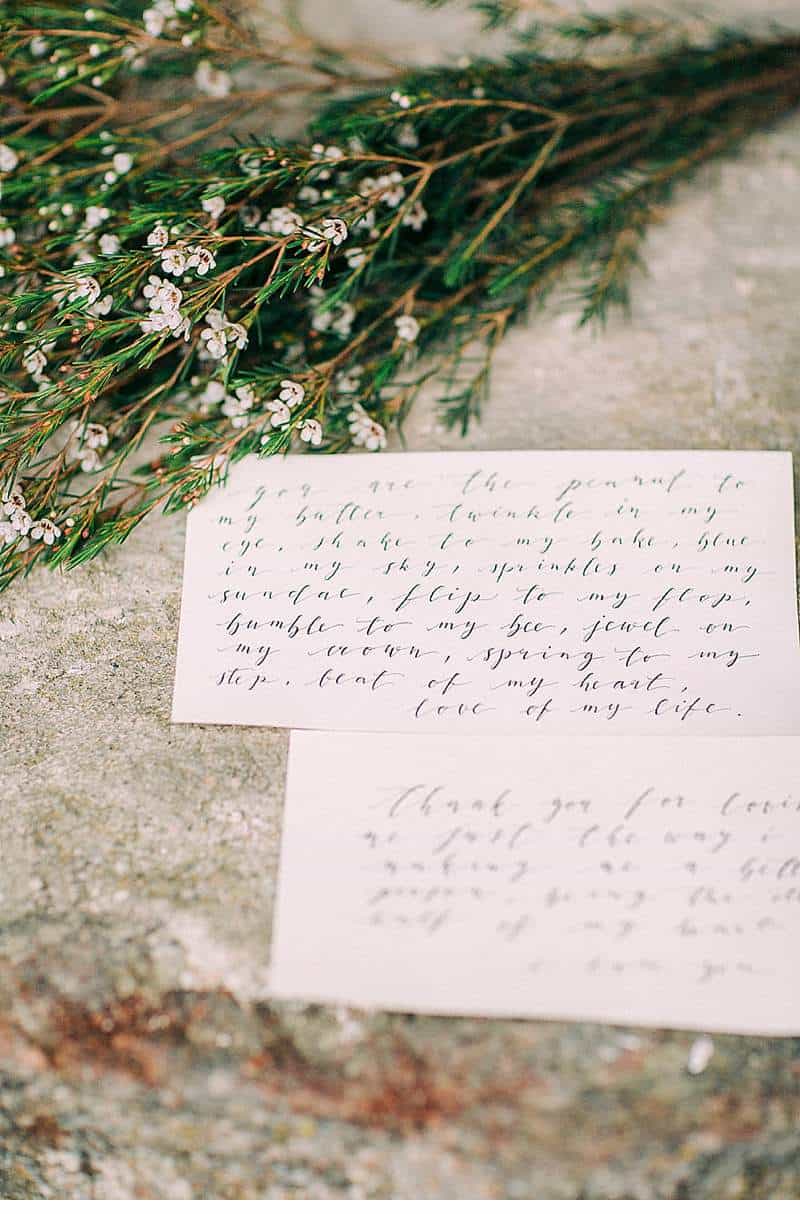 you are the peanut to
my butter, twinkle in my
eye, shake to my bake, blue
in my sky, sprinkles on my
sundae, flip to my flop,
bumble to my bee, jewel on
my crown, spring to my
step, beat of my heart,
love of my life.
Thank you for lovin
me just the way i
making me a bett
person, being the
half of my heart
i love you